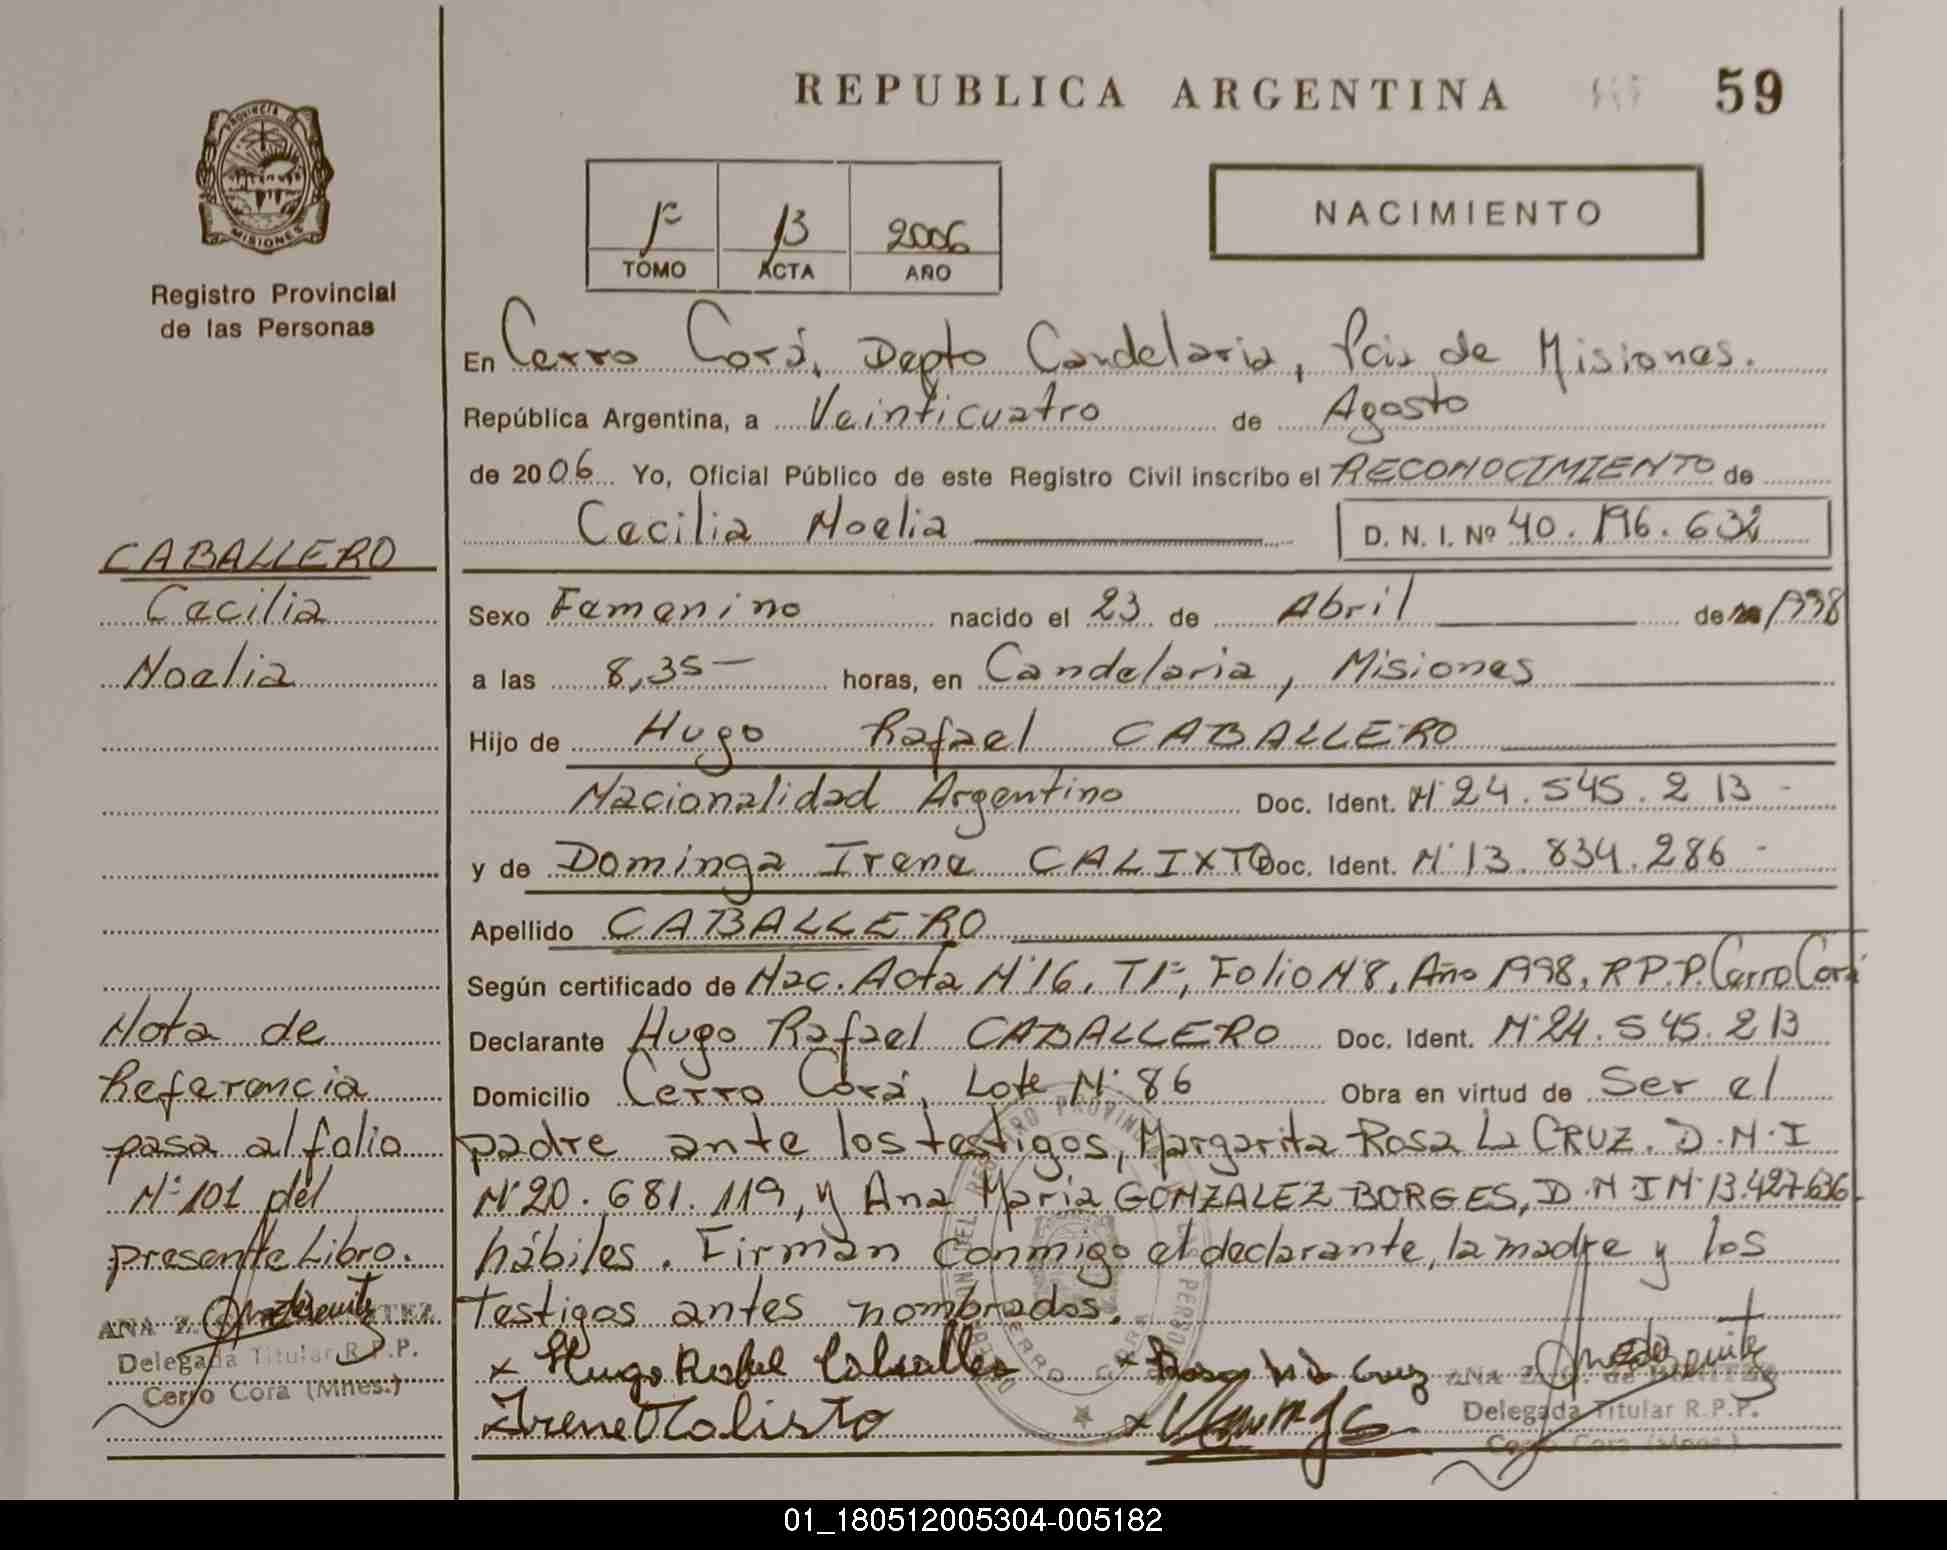 REPUBLICA ARGENTINA
59
PROVINCIA DE
MISIONES
Registro Provincial
de las Personas
1º 13 2006
TOMO ACTA AÑO
NACIMIENTO
En Cerro Corá, Depto Candelaria, Pcia de Misiones.
República Argentina, a Veinticuatro de Agosto
de 2006 Yo, Oficial Público de este Registro Civil inscribo el RECONOCIMIENTO de
Cecilia Noelia D. N. I. Nº 40.196.632
Sexo Femenino nacido el 23 de Abril de 1998
a las 8,35 horas, en Candelaria, Misiones
Hijo de Hugo Rafael CABALLERO
Nacionalidad Argentino Doc. Ident. Nº 24.545.213 -
y de Dominga Irene CALIXTO Doc. Ident. Nº 13.834.286 -
Apellido CABALLERO
Según certificado de Nac. Acta Nº 16, T 1º, Folio Nº 8, Año 1998, R.P.P. Cerro Corá
Declarante Hugo Rafael CABALLERO Doc. Ident. Nº 24.545.213
Domicilio Cerro Corá, Lote Nº 86 Obra en virtud de Ser el
padre ante los testigos, Margarita Rosa La CRUZ. D.N.I
Nº 20.681.119, y Ana María GONZALEZ BORGES, D.N.I Nº 13.427.636
hábiles. Firman conmigo el declarante, la madre y los
testigos antes nombrados.
x Hugo Rafael Caballero
x Rosa La Cruz
Irene Calisto
ANA Z.
Delegada Titular R.P.P.
Cerro Cora (Mnes.)
CABALLERO
Cecilia
Noelia
Nota de
Referencia
pasa al folio
Nº 101 del
presente Libro.
ANA Z.
Delegada Titular R.P.P.
Cerro Cora (Mnes.)
01_180512005304-005182